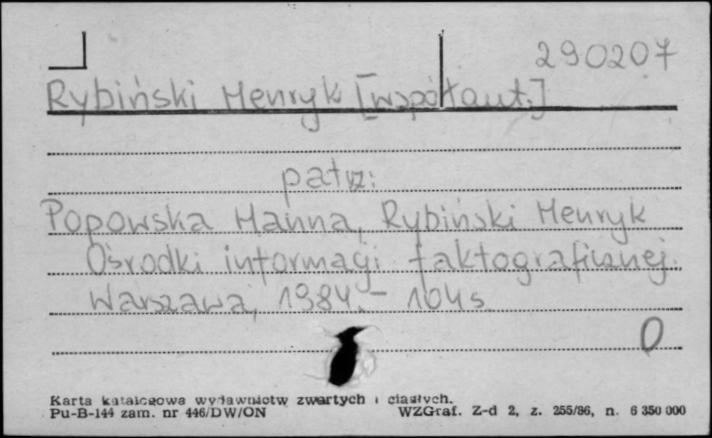 290207
Rybiński Henryk [współaut.]
patrz:
Popowska Hanna, Rybiński Henryk
Ośrodki informacji faktograficznej.
Warszawa, 1984. - 104 s.
0
Karta katalogowa wydawnictw zwartych i ciągłych.
Pu-B-144 zam. nr 446/DW/ON WZGraf. Z-d 2, z. 255/86, n. 6 350 000